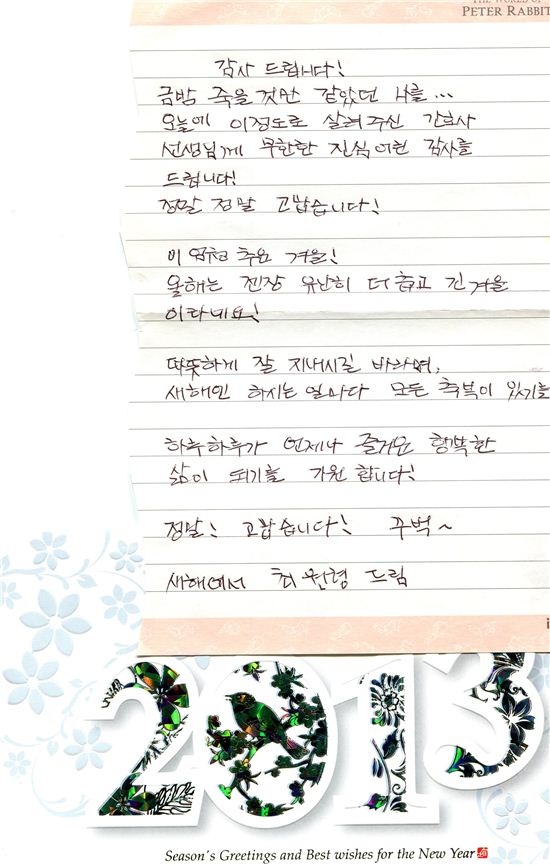 THE WORLD OF
PETER RABBIT
감사 드립니다!
금방 죽을 것만 같았던 나를...
오늘에 이정도로 살려주신 간호사
선생님께 무한한 진심어린 감사를
드립니다!
정말 정말 고맙습니다!
이 엄청 추운 겨울!
올해는 젠장 유난히 더 춥고 긴 겨울
이라네요!
따뜻하게 잘 지내시길 바라며,
새해엔 하시는 일마다 모든 축복이 있기를
하루하루가 언제나 즐거운 행복한
삶이 되기를 기원 합니다!
정말! 고맙습니다! 꾸벅~
새해에서 최원형 드림
2013
Season's Greetings and Best wishes for the New Year